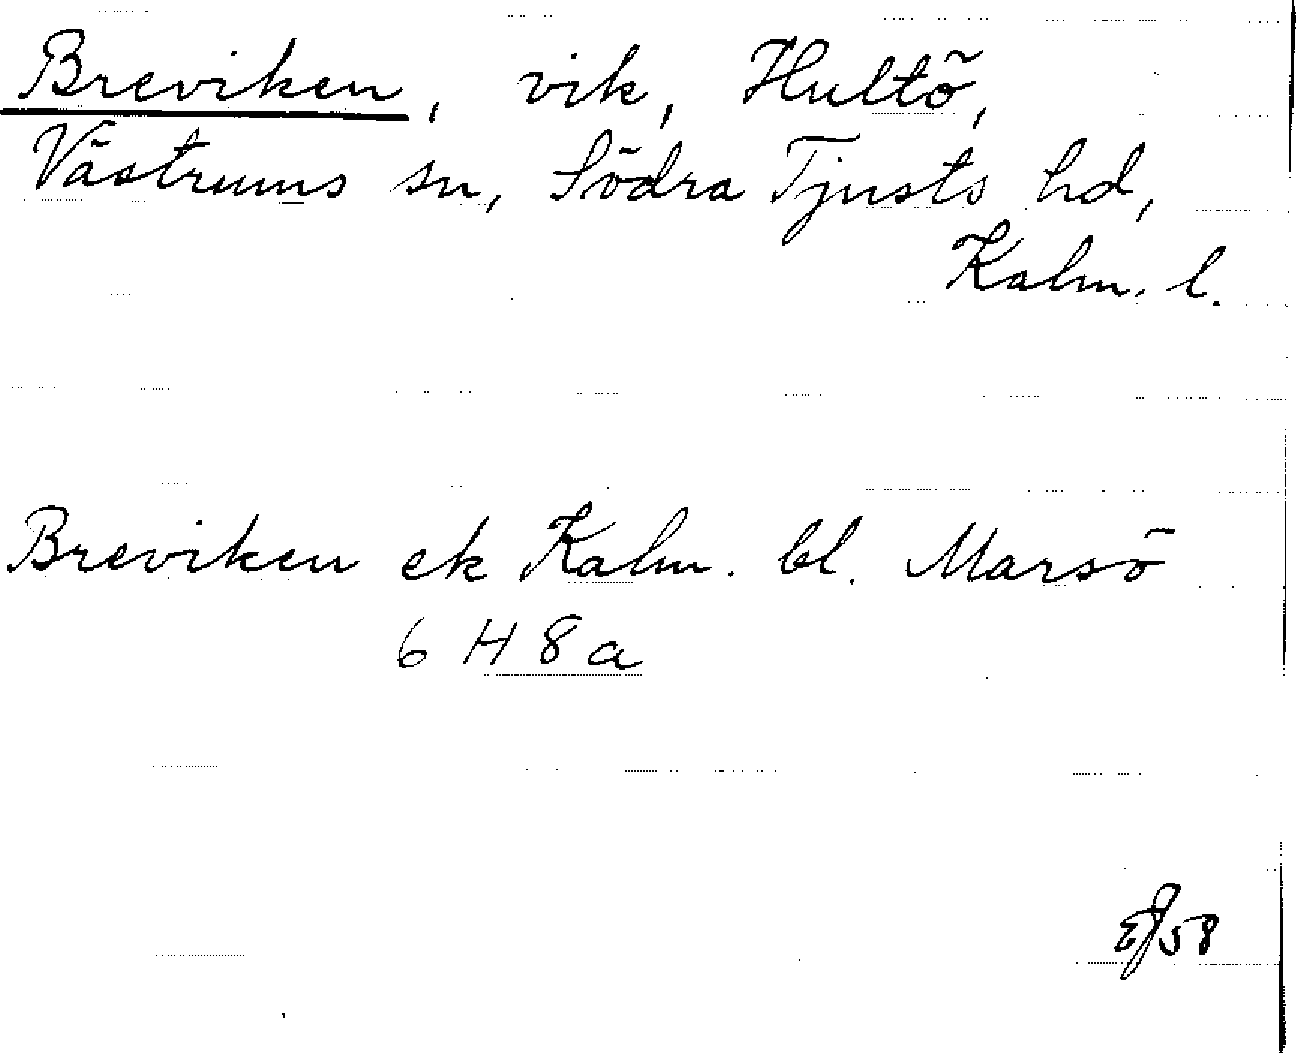 Breviken, vik, Hultö,
Västrums sn, Södra Tjusts hd,
Kalm. l.
Breviken ek Kalm. bl. Marsö
6 H 8 a
58